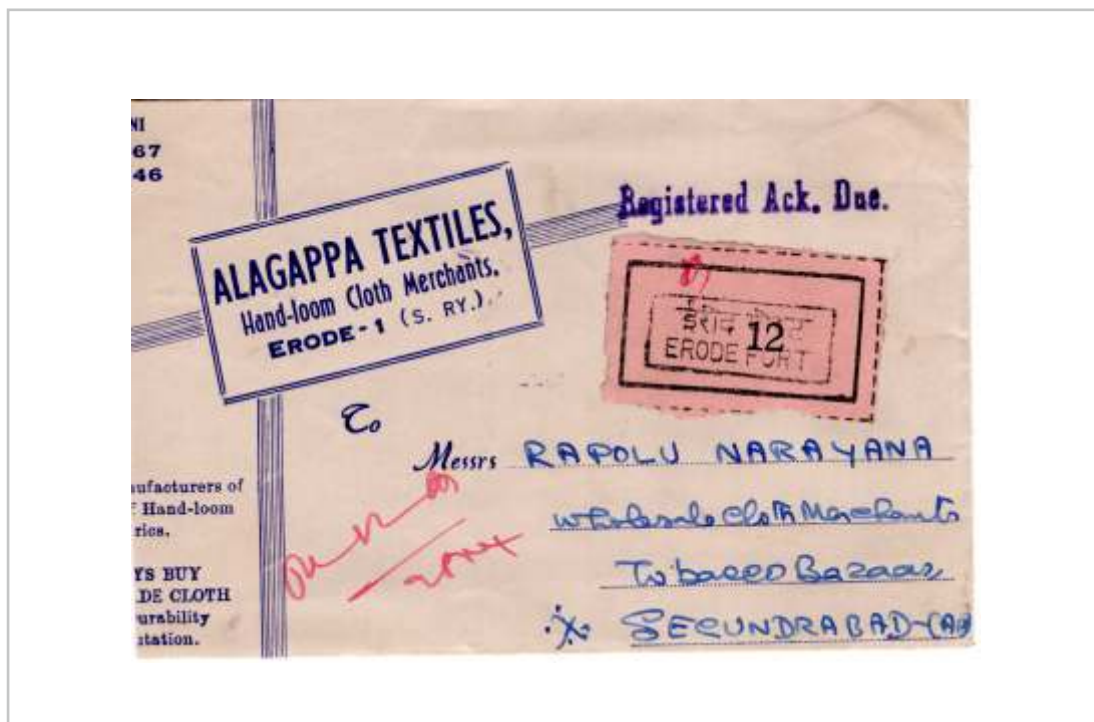 NI
67
46
ALAGAPPA TEXTILES,
Hand-loom Cloth Merchants.
ERODE-1 (S. RY.)
Registered Ack. Due.
12
ERODE FORT
To
Messrs RAPOLU NARAYANA
Wholesale Cloth Merchants
Tobacco Bazaar
SECUNDRABAD-(AP)
ufacturers of
Hand-loom
rics.
YS BUY
DE CLOTH
urability
utation.